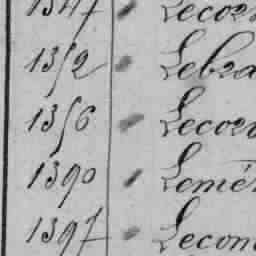 1347 " Lecoz
1352 " Lebra
1356 " Lecoz
1390 " Lomé
1397 " Lecon